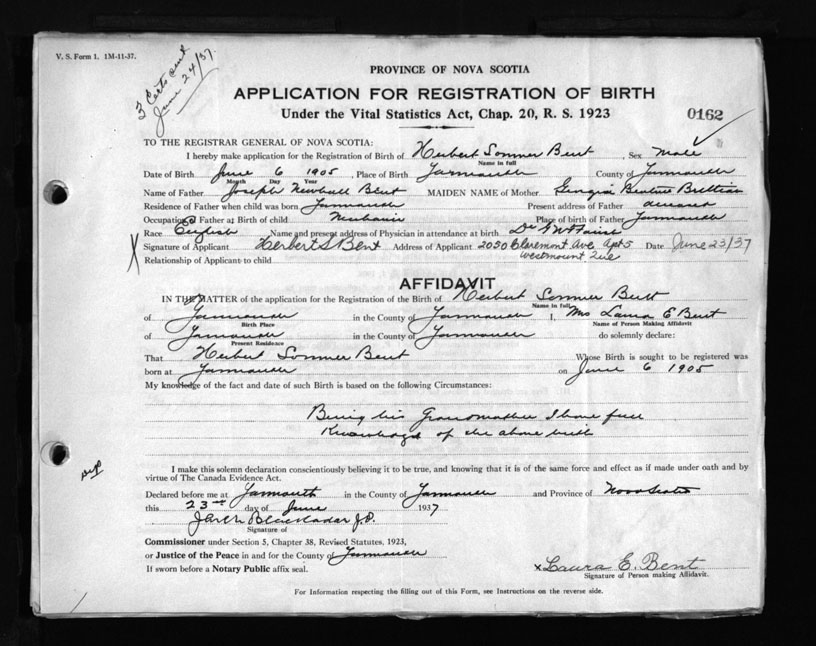 V. S. Form 1. 1M-11-37.
3 Certs sent
June 24/37.
PROVINCE OF NOVA SCOTIA
APPLICATION FOR REGISTRATION OF BIRTH
Under the Vital Statistics Act, Chap. 20, R. S. 1923
0162
TO THE REGISTRAR GENERAL OF NOVA SCOTIA:
I hereby make application for the Registration of Birth of Herbert Sommer Bent, Sex Male
Name in full
Date of Birth June 6 1905, Place of Birth Yarmouth County of Yarmouth
Month Day Year
Name of Father Joseph Newball Bent MAIDEN NAME of Mother
Residence of Father when child was born Yarmouth Present address of Father deceased
Occupation of Father at Birth of child Place of birth of Father Yarmouth
Race English Name and present address of Physician in attendance at birth Dr
Signature of Applicant Herbert S Bent Address of Applicant 2050 Claremont Ave. Apt 5 Date June 23/37
Westmount Que
Relationship of Applicant to child
AFFIDAVIT
IN THE MATTER of the application for the Registration of the Birth of Herbert Sommer Bent
Name in full
of Yarmouth in the County of Yarmouth I, Mrs Laura E Bent
Birth Place Name of Person Making Affidavit
of Yarmouth in the County of Yarmouth do solemnly declare:
Present Residence
That Herbert Sommer Bent Whose Birth is sought to be registered was
born at Yarmouth on June 6 1905
My knowledge of the fact and date of such Birth is based on the following Circumstances:
Being his Grandmother I have full
Knowledge of the above birth
I make this solemn declaration conscientiously believing it to be true, and knowing that it is of the same force and effect as if made under oath and by
virtue of The Canada Evidence Act.
Declared before me at Yarmouth in the County of Yarmouth and Province of Nova Scotia
this 23rd day of June 1937
Blackadar J.P.
Signature of
Commissioner under Section 5, Chapter 38, Revised Statutes, 1923,
or Justice of the Peace in and for the County of Yarmouth
If sworn before a Notary Public affix seal.
x Laura E. Bent
Signature of Person making Affidavit.
For Information respecting the filling out of this Form, see Instructions on the reverse side.